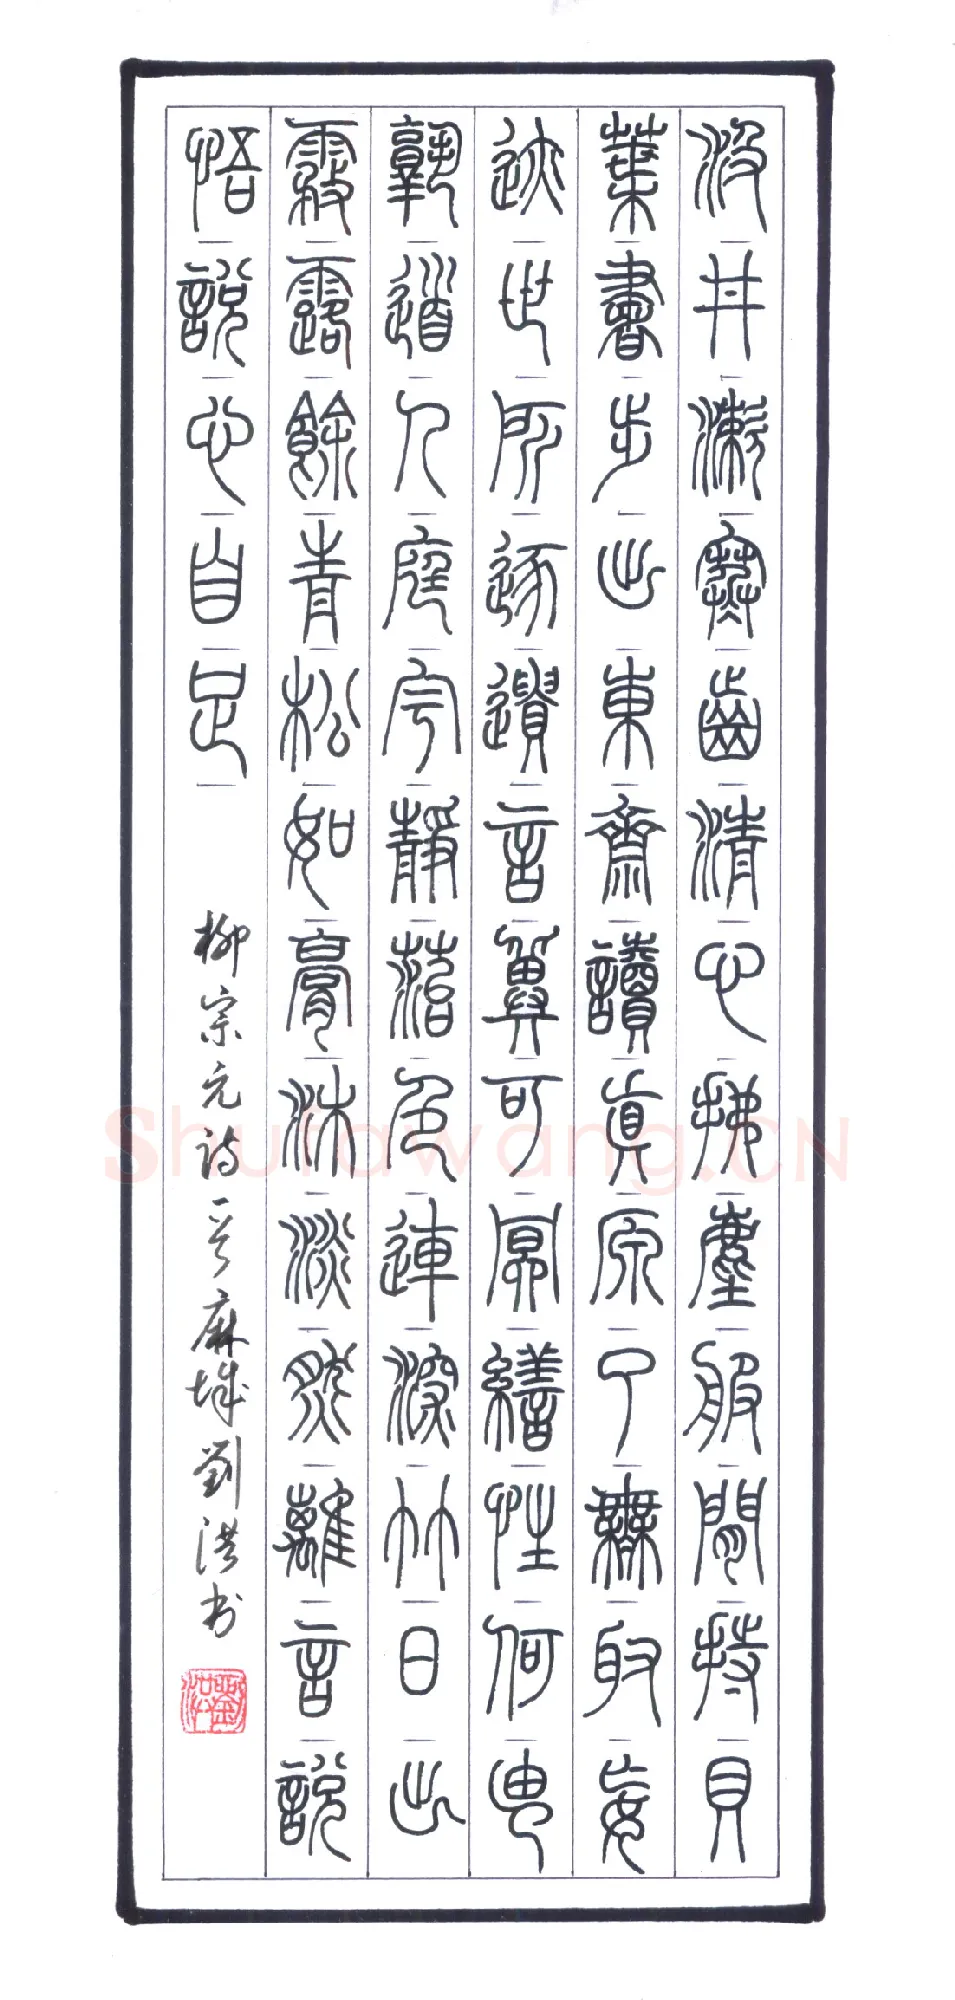 汲井漱寒齒清心拂塵服閒持貝
葉書步出東齋讀真原了無取妄
迹世所逐遺言冀可冥繕性何由
孰道人庭宇靜菭色連深竹日出
霧露餘青松如膏沐淡然離言說
悟說心自足
柳宗元诗一首麻城劉洪书
劉洪
Shufawang.CN